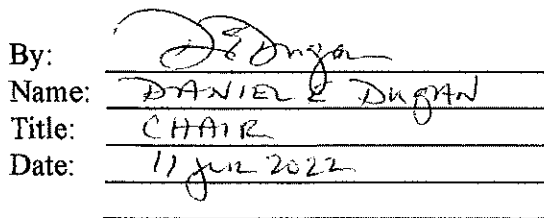 By: DE Dugan
Name: DANIEL E DugAN
Title: CHAIR
Date: 11 JUL 2022